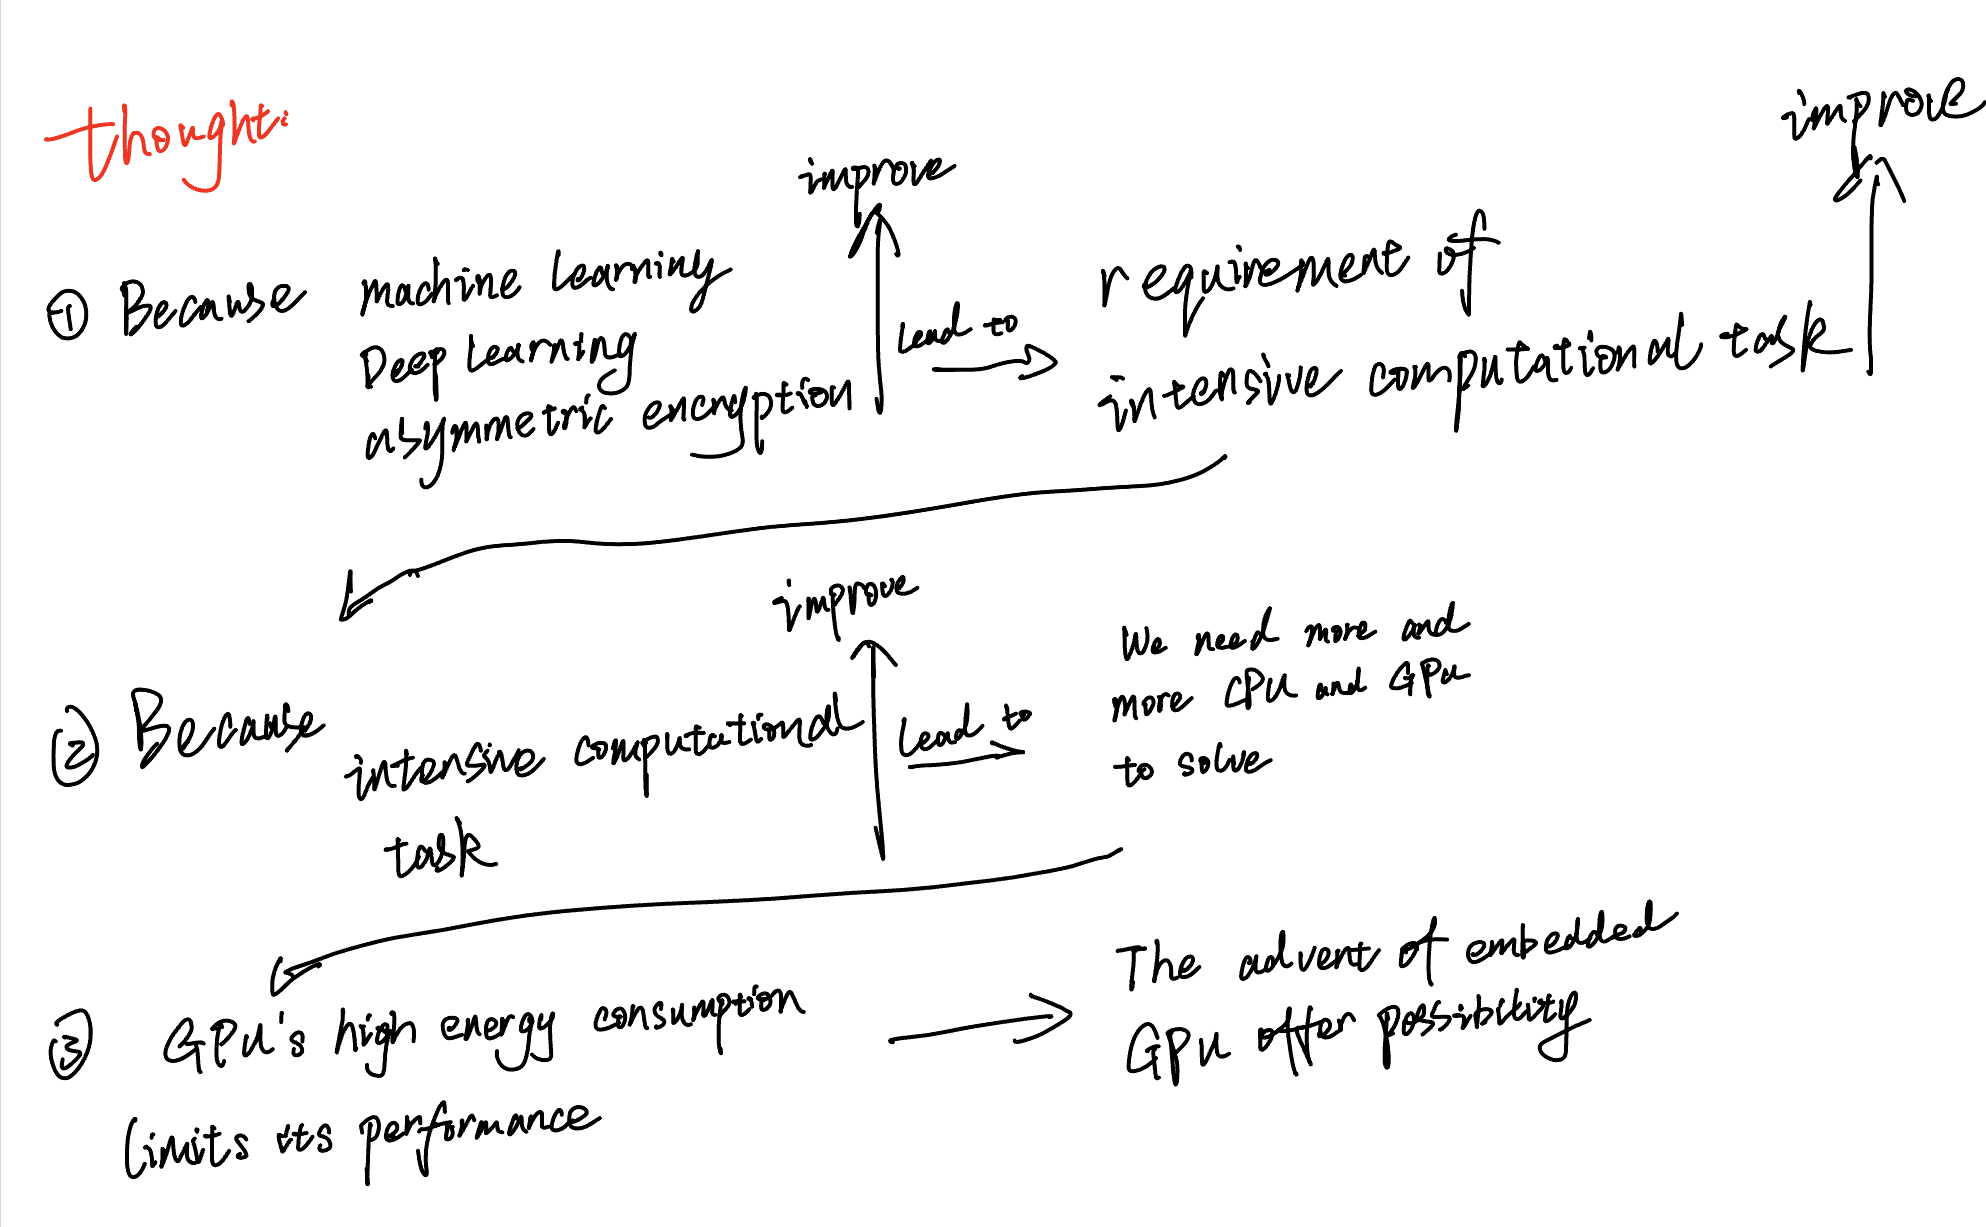 thought:
improve
improve
① Because machine learning
Deep learning
asymmetric encryption
Lead to
requirement of
intensive computational task
improve
② Because
intensive computational
task
Lead to
We need more and
more CPU and GPU
to solve
③ GPU's high energy consumption
limits its performance
The advent of embedded
GPU offer possibility